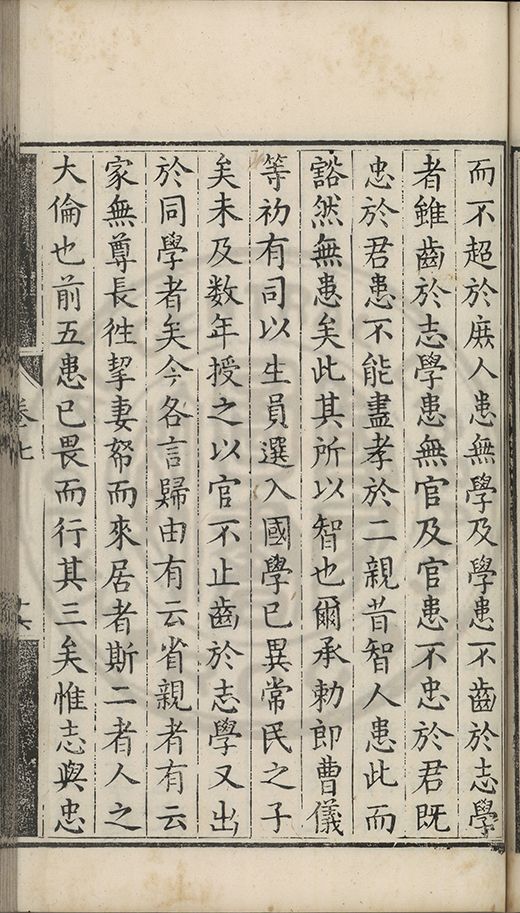 而不超於庶人患無學及學患不齒於志學
者雖齒於志學患無官及官患不忠於君既
忠於君患不能盡孝於二親昔智人患此而
豁然無患矣此其所以智也爾承勑郎曹儀
等初有司以生員選入國學已異常民之子
矣未及数年授之以官不止齒於志學又出
於同學者矣今各言歸由有云省親者有云
家無尊長徃挈妻帑而來居者斯二者人之
大倫也前五患已畏而行其三矣惟志與忠
卷七